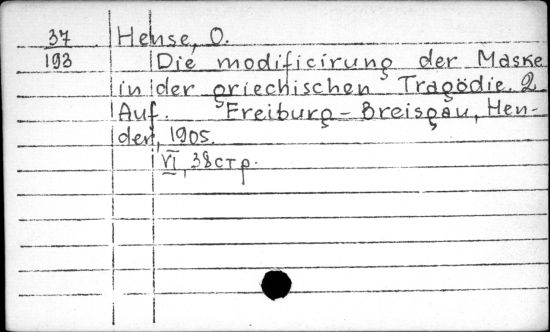 37 Hense, O.
193 Die modificirung der Maske
in der griechischen Tragödie. 2
Auf. Freiburg - Breisgau, Hen-
der, 1905.
VI, 38 стр.